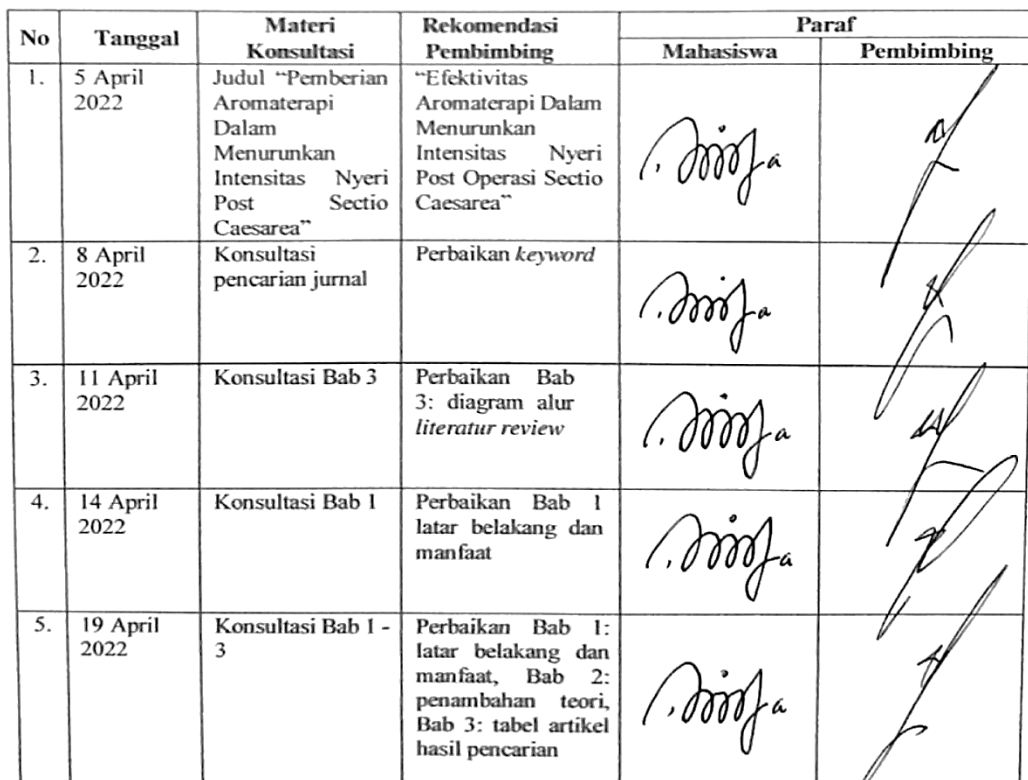 No Tanggal Materi Konsultasi Rekomendasi Pembimbing Paraf
Mahasiswa Pembimbing
1. 5 April 2022
Judul “Pemberian
Aromaterapi
Dalam
Menurunkan
Intensitas Nyeri
Post Sectio
Caesarea”
“Efektivitas
Aromaterapi Dalam
Menurunkan
Intensitas Nyeri
Post Operasi Sectio
Caesarea”
2. 8 April 2022
Konsultasi
pencarian jurnal
Perbaikan keyword
3. 11 April 2022
Konsultasi Bab 3
Perbaikan Bab
3: diagram alur
literatur review
4. 14 April 2022
Konsultasi Bab 1
Perbaikan Bab 1
latar belakang dan
manfaat
5. 19 April 2022
Konsultasi Bab 1 -
3
Perbaikan Bab 1:
latar belakang dan
manfaat, Bab 2:
penambahan teori,
Bab 3: tabel artikel
hasil pencarian